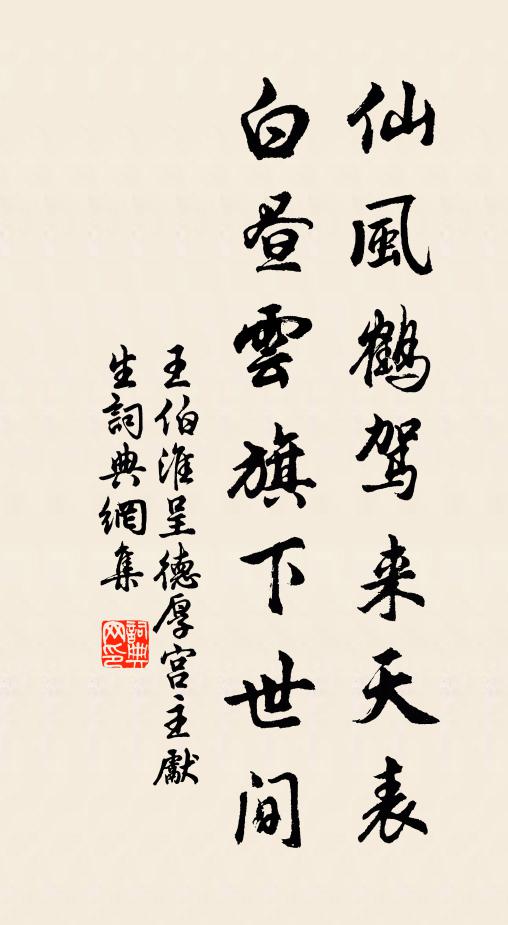 仙風鶴驾来天表
白昼雲旗下世间
王伯淮呈德厚宫主獻
生詞典網集
詞典網印